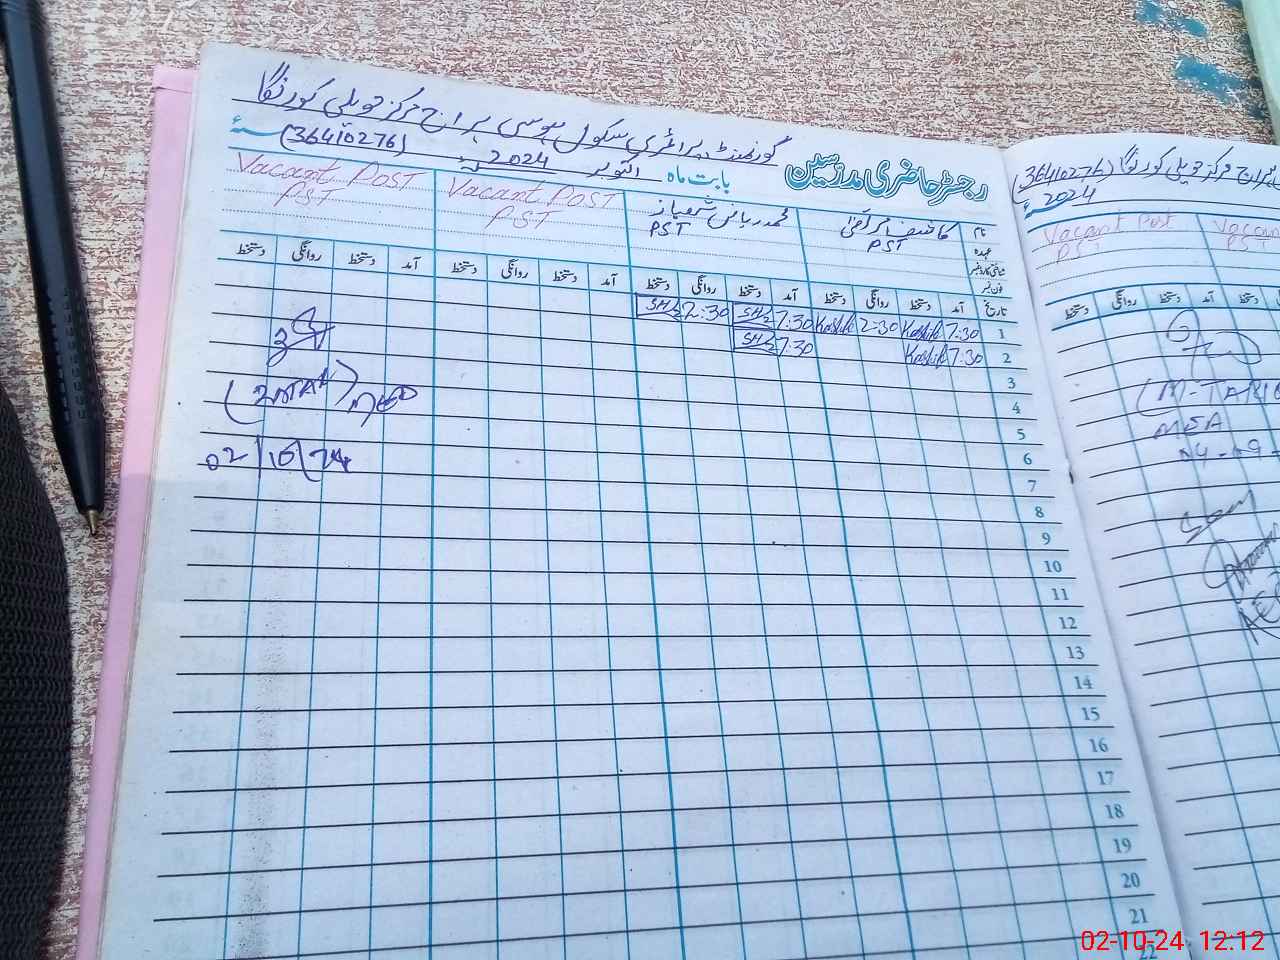 گورنمنٹ پرائمری سکول موسی براج مرکز حویلی کورنگا
(36410276)
رجسٹر حاضری مدرسین بابت ماہ اکتوبر 2024 سنہء
نام محمد ریاض شہباز Vacant Post Vacant Post
عہدہ PST PST PST PST
شناختی کارڈ نمبر
فون نمبر
تاریخ آمد دستخط روانگی دستخط آمد دستخط روانگی دستخط آمد دستخط روانگی دستخط آمد دستخط روانگی دستخط
1 7:30 Kashif 2:30 Kashif 7:30 2:30
2 7:30 Kashif 7:30
3
4
5
6
7
8
9
10
11
12
13
14
15
16
17
18
19
20
21
22
02/10/24
مرکز حویلی کورنگا (36410276)
2024
Vacant Post Vacant
PST PST
دستخط روانگی دستخط آمد دستخط
(M-TARIQ
MEA
04-09-
02-10-24 12:12